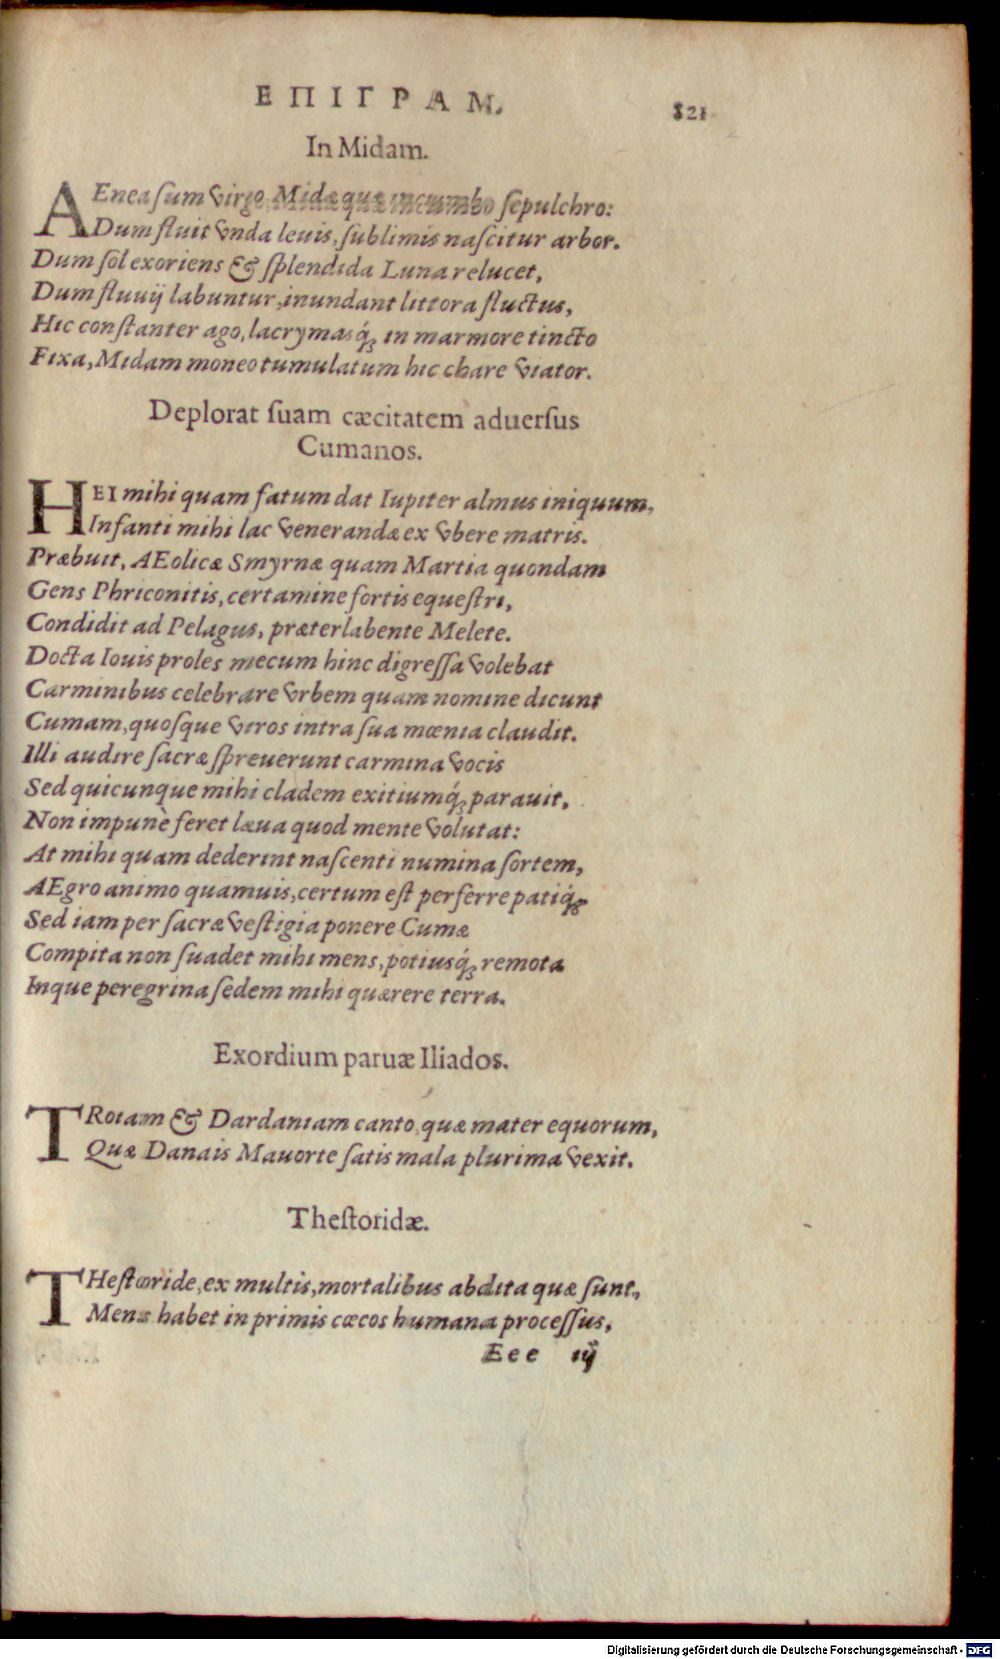 ΕΠΙΓΡΑΜ.
821
In Midam.
AEnea ſum virgo, Midæ quæ incumbo ſepulchro:
Dum fluit vnda leuis, ſublimis naſcitur arbor.
Dum ſol exoriens & ſplendida Luna relucet,
Dum fluuij labuntur, inundant littora fluctus,
Hic conſtanter ago, lacrymasq́; in marmore tincto
Fixa, Midam moneo tumulatum hic chare viator.
Deplorat ſuam cæcitatem aduerſus
Cumanos.
HEI mihi quam fatum dat Iupiter almus iniquum,
Infanti mihi lac venerandæ ex vbere matris.
Præbuit, AEolicæ Smyrnæ quam Martia quondam
Gens Phriconitis, certamine fortis equeſtri,
Condidit ad Pelagus, præterlabente Melete.
Docta Iouis proles mecum hinc digreſſa volebat
Carminibus celebrare vrbem quam nomine dicunt
Cumam, quoſque viros intra ſua mœnia claudit.
Illi audire ſacræ ſpreuerunt carmina vocis
Sed quicunque mihi cladem exitiumq́; parauit,
Non impunè feret læua quod mente volutat:
At mihi quam dederint naſcenti numina ſortem,
AEgro animo quamuis, certum eſt perferre patiq́;
Sed iam per ſacræ veſtigia ponere Cumæ
Compita non ſuadet mihi mens, potiusq́; remota
Inque peregrina ſedem mihi quærere terra.
Exordium paruæ Iliados.
TRoiam & Dardaniam canto, quæ mater equorum,
Quæ Danais Mauorte ſatis mala plurima vexit.
Theſtoridæ.
THeſtoride, ex multis, mortalibus abdita quæ ſunt,
Mens habet in primis cœcos humana proceſſus,
Eee iij
Digitalisierung gefördert durch die Deutsche Forschungsgemeinschaft - DFG